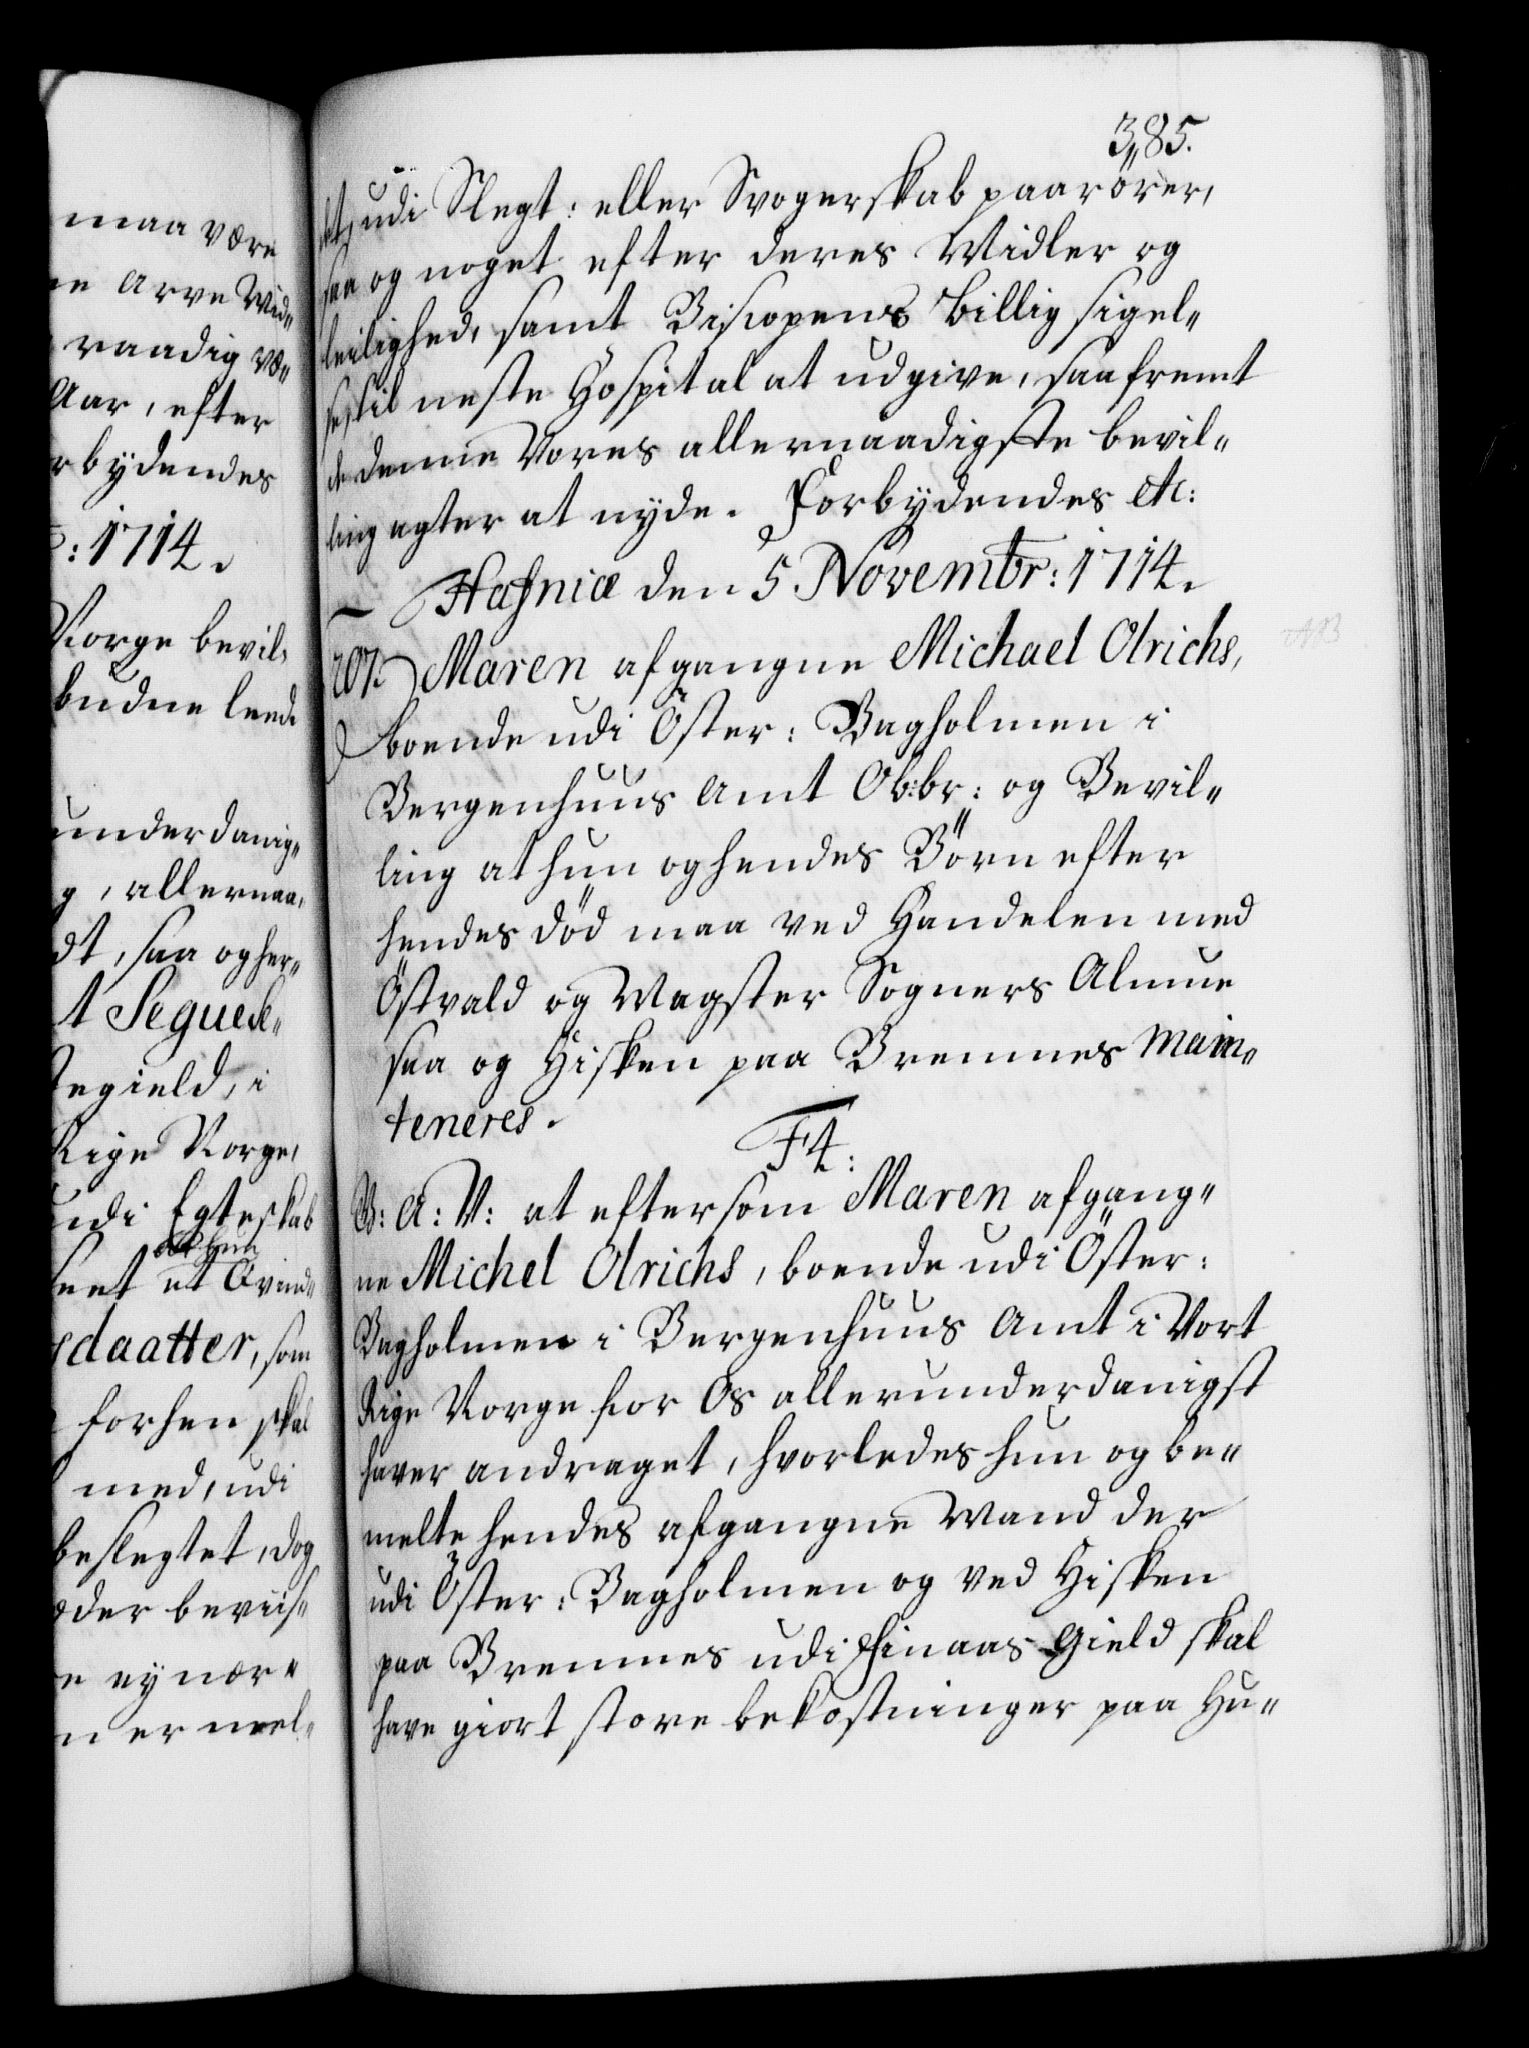 maa være
ne Arve Mid„
raadig væ„
Aar, efter
rbÿdendes
: 1714.
Norge bevil„
budne leede
underdanig„
g, allernaa„
dt, saa og her„
t Seqvest„
tegield, i
Rige Norge,
udi Egteskab
at hun
sent et Qvind„
sdaatter, som
forhen skal
med, udi
beslegtet, dog
øder beviis„
e eÿ nær„
n er mel„
385.
tet, udi Slegt: eller Svogerskab paarörer,
saa og noget efter deres Midler og
leilighed, samt Biscopens billig sigel„
se til neste Hospital at udgive, saafremt
de denne Vores allernaadigste bevil„
ling agter at nyde. Forbÿdendes etc:
Hafniæ den 5 Novembr: 1714.
Maren afgangne Michael Olrichs,
boende udi Öster: Bagholmen i
Bergenhuus Amt Ob:br: og Bevil„
ling at hun og hendes Börn efter
hendes död maa ved Handelen med
Östvald og Magster Sogners Almue
saa og Hisken paa Bremnes main„
teneres.
F4:
G: A: V: at eftersom Maren afgang„
ne Michel Olrichs, boende udi Öster:
Bagholmen i Bergenhuus Amt i Vort
Rige Norge for Os allerunderdanigst
haver andraget, hvorledes hun og be„
melte hendes afgangne Mand der
udi Öster: Bagholmen og ved Hisken
paa Bremnes udi Finaas Gield skal
have giort store bekostninger paa Hu„